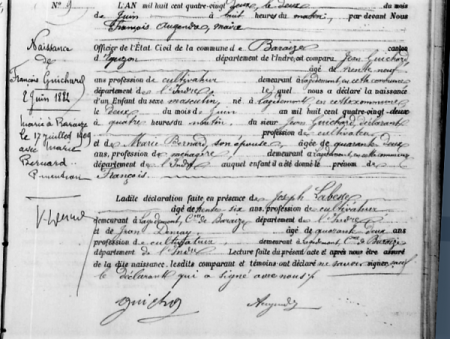 N° 9
Naissance
de
François Guichard
2 Juin 1882
Marié à Baraize
le 17 juillet 1909
avec Marie
Bernard
L'AN mil huit cent quatre-vingt deux le deux du mois
de Juin à huit heures du matin, par devant Nous
François maire
Officier de l'État Civil de la commune de Baraize canton
d' département de l'Indre, est comparu Jean Guichard
âgé de trente neuf
ans profession de cultivateur demeurant à en cette commune
département de l'Indre lequel nous a déclaré la naissance
d'un Enfant du sexe masculin né à en cette commune
le deux du mois de Juin an mil huit cent quatre-vingt-deux
à quatre heures du matin, du sieur Jean Guichard, déclarant
profession de cultivateur
et de Marie Bernard son épouse, âgée de quarante deux
ans, profession de ménagère demeurant à en cette commune
département de l'Indre auquel enfant il a été donné prénom de
François
Ladite déclaration faite en présence de Joseph
âgé de trente six ans, profession de cultivateur
demeurant à Cne de Baraize département de l'Indre
et de Jean âgé de quarante deux ans
profession de cultivateur demeurant à Cne de Baraize
département de l'Indre Lecture faite du présent acte et après nous être assuré
de la dite naissance, lesdits comparant et témoins ont déclaré ne savoir signer, sauf
le déclarant qui a signé avec nous
Guichard